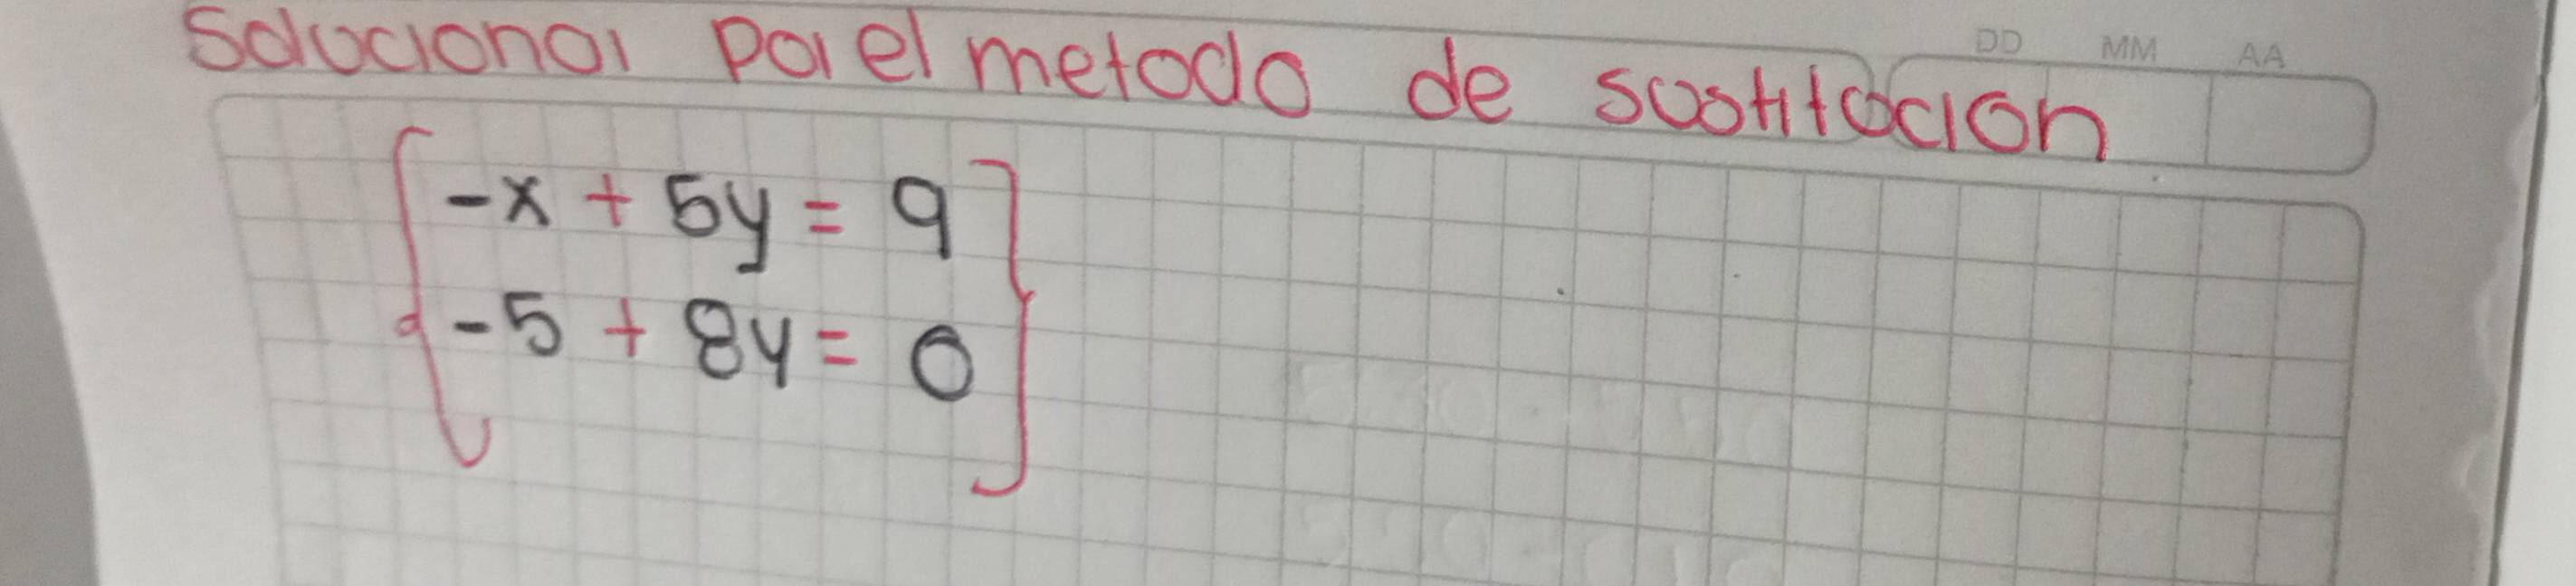 Solucionar por el metodo de sustitucion
DD MM AA
-x + 5y = 9
-5 + 8y = 0